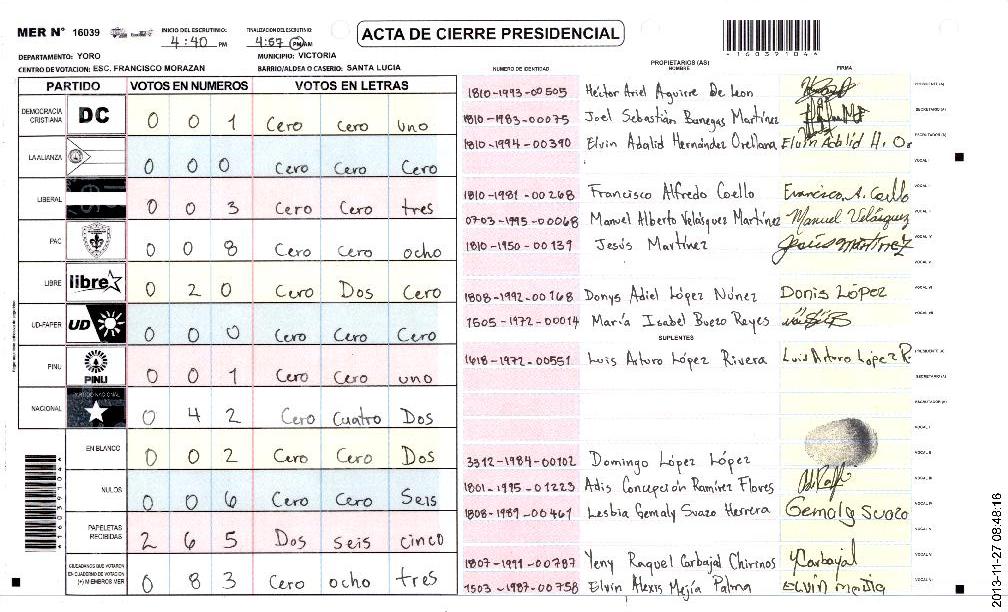 MER Nº 16039
INICIO DEL ESCRUTINIO:
4:40 PM
FINALIZACION DEL ESCRUTINIO:
4:57 PM/AM
ACTA DE CIERRE PRESIDENCIAL
4160391044
DEPARTAMENTO: YORO
MUNICIPIO: VICTORIA
CENTRO DE VOTACION: ESC. FRANCISCO MORAZAN
BARRIO/ALDEA O CASERIO: SANTA LUCIA
PARTIDO VOTOS EN NUMEROS VOTOS EN LETRAS
DEMOCRACIA CRISTIANA DC 0 0 1 Cero Cero uno
LA ALIANZA 0 0 0 Cero Cero Cero
LIBERAL 0 0 3 Cero Cero tres
PAC 0 0 8 Cero Cero ocho
LIBRE libre 0 2 0 Cero Dos Cero
UD-FAPER UD 0 0 0 Cero Cero Cero
PINU PINU 0 0 1 Cero Cero uno
NACIONAL 0 4 2 Cero Cuatro Dos
EN BLANCO 0 0 2 Cero Cero Dos
NULOS 0 0 6 Cero Cero Seis
PAPELETAS RECIBIDAS 2 6 5 Dos seis cinco
CIUDADANOS QUE VOTARON EN CUADERNO DE VOTACION (+) MIEMBROS MER 0 8 3 Cero ocho tres
4160391044
PROPIETARIOS (AS)
NUMERO DE IDENTIDAD NOMBRE FIRMA
1810-1993-00505 Héctor Ariel Aguirre De Leon PRESIDENTE (A)
1810-1983-00075 Joel Sebastián Banegas Martínez SECRETARIO (A)
1810-1994-00390 Elvin Adalid Hernández Orellana Elvin Adalid H. Or ESCRUTADOR (A)
VOCAL I
1810-1981-00268 Francisco Alfredo Coello Francisco A. Coello
0703-1995-00068 Manuel Alberto Velásquez Martínez Manuel Velásquez
1810-1950-00139 Jesús Martínez Jesús Martínez VOCAL IV
VOCAL V
1808-1992-00168 Donys Adiel López Núnez Donis López VOCAL VI
1505-1972-00014 María Isabel Buezo Reyes VOCAL VII
SUPLENTES
1618-1972-00551 Luis Arturo López Rivera Luis Arturo López R PRESIDENTE (A)
SECRETARIO (A)
ESCRUTADOR (A)
VOCAL I
3312-1984-00102 Domingo López López VOCAL II
1801-1995-01223 Adis Concepción Ramírez Flores VOCAL III
1808-1989-00461 Lesbia Gemaly Suazo Herrera Gemaly Suazo VOCAL IV
VOCAL V
1807-1991-00787 Yeny Raquel Carbajal Chirinos YCarbajal
1503-1987-00758 Elvin Alexis Mejía Palma
2013-11-27 08:48:16